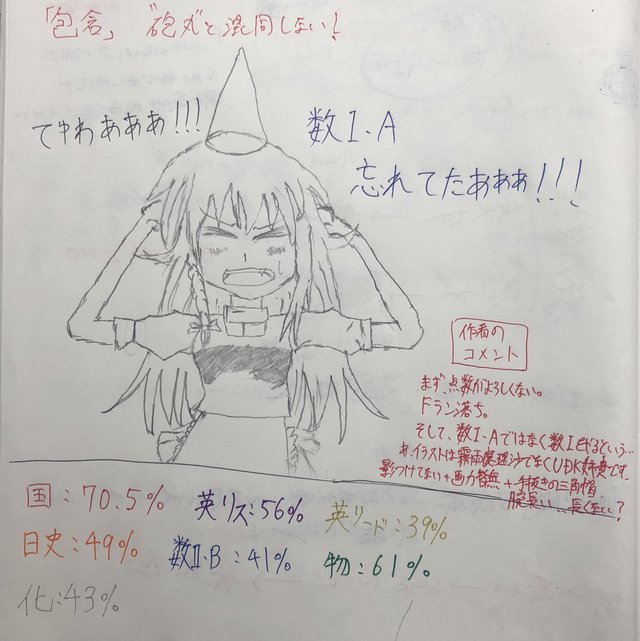 「包含」"砲丸"と混同しない!
てゆわぁぁぁ!!!
数I・A
忘れてたぁぁぁ!!!
作者の
コメント
まず、点数がよろしくない。
ドラン落ち。
そして、数I・Aではなく数Iをやるという…
あ、イラストは霧雨魔理沙でなくUDK姉貴です。
影つけてない+画力皆無+手抜きの三角帽
腕長い…長くない?
国:70.5%
英リス:56%
英リード:39%
日史:49%
数II・B:41%
物:61%
化:43%